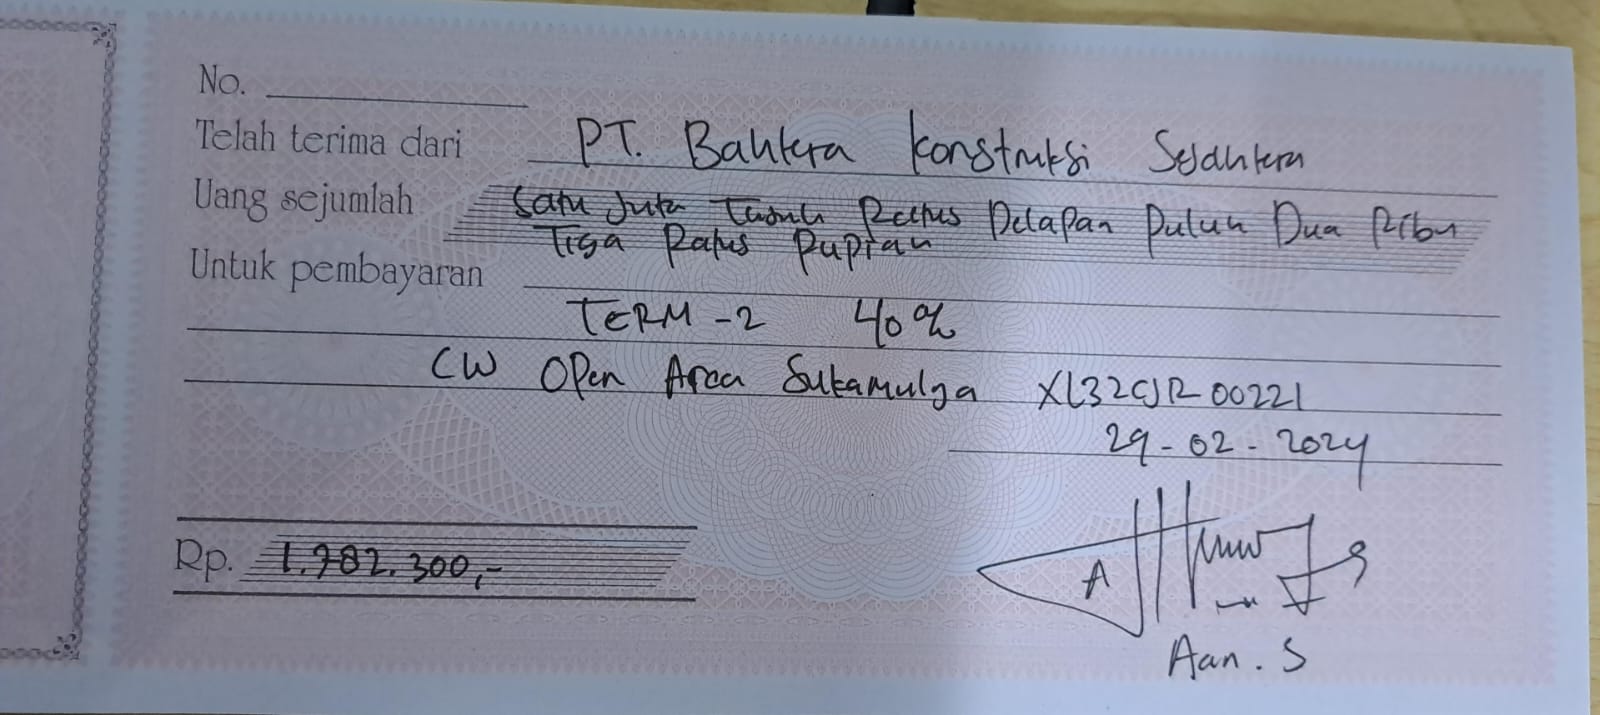 No.
Telah terima dari PT. Bahtera Konstruksi Sejahtera
Uang sejumlah Satu Juta Tujuh Ratus Delapan Puluh Dua Ribu
Tiga Ratus Rupiah
Untuk pembayaran
TERM - 2 40%
CW Open Area Sukamulya XL32CJR00221
29 - 02 - 2024
Rp. 1.782.300,-
A
Aan . S